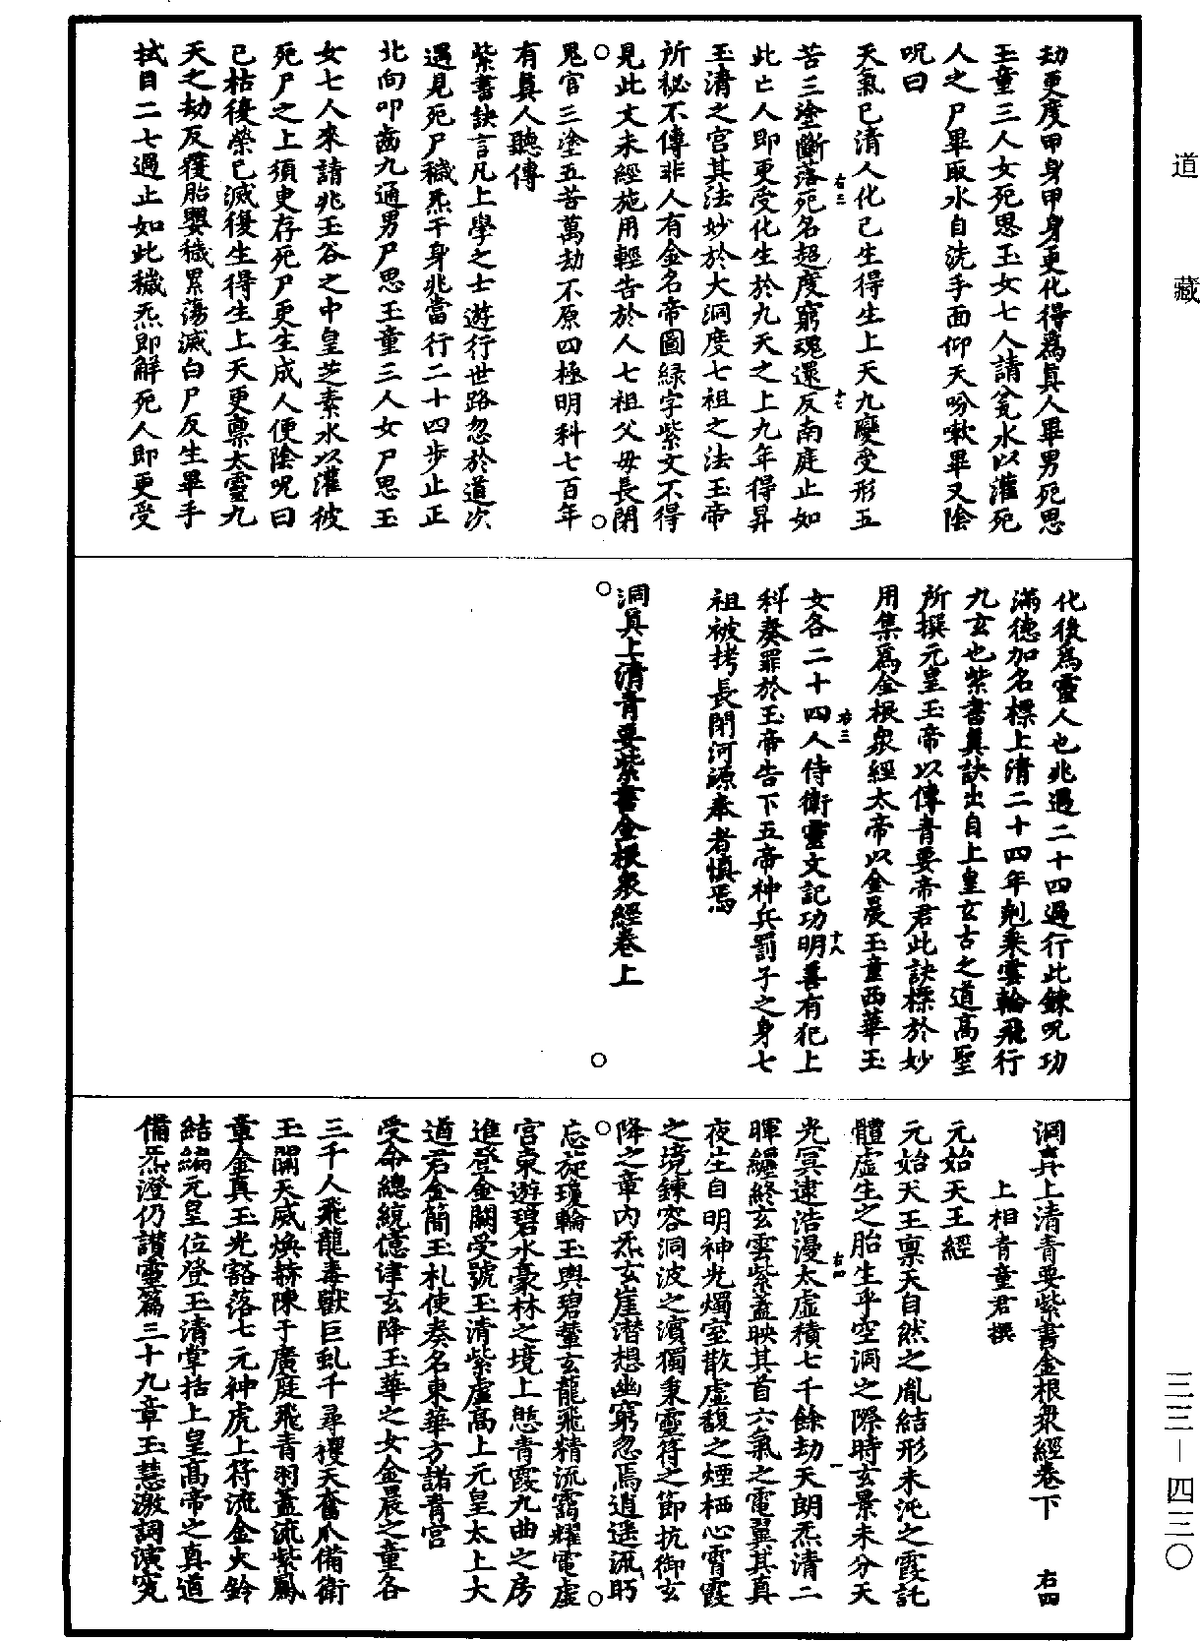 道藏
三三－四三〇
劫更度甲身甲身更化得為真人畢男死思
玉童三人女死思玉女七人請瓮水以灌死
人之尸畢取水自洗手面仰天吩嗽畢又陰
呪曰
天氣已清人化已生得生上天九變受形五
苦三塗斷落死名超度窮魂還反南庭止如
此亡人即更受化生於九天之上九年得昇
玉清之宮其法妙於大洞度七祖之法玉帝
所秘不傳非人有金名帝圖緑字紫文不得
見此文未經施用輕告於人七祖父母長閉
鬼官三塗五苦萬劫不原四極明科七百年
有真人聽傳
紫書訣言凡上學之士遊行世路忽於道次
遇見死尸穢炁干身兆當行二十四步止正
北向叩齒九通男尸思玉童三人女尸思玉
女七人來請兆玉谷之中皇芝素水以灌彼
死尸之上須臾存死尸更生成人便陰呪曰
已枯復榮已滅復生得生上天更稟太靈九
天之劫反獲胎嬰穢累蕩滅白尸反生畢手
拭目二七過止如此穢炁即解死人即更受
右三
十七
化後為靈人也兆遇二十四過行此鍊呪功
滿德加名標上清二十四年剋乘雲輪飛行
九玄也紫書真訣出自上皇玄古之道高聖
所撰元皇玉帝以傳青要帝君此訣標於妙
用集為金根衆經太帝以金晨玉童西華玉
女各二十四人侍衛靈文記功明善有犯上
科奏罪於玉帝告下五帝神兵罰子之身七
祖被拷長閉河源奉者慎焉
右三
十八
洞真上清青要紫書金根衆經卷上
洞真上清青要紫書金根衆經卷下
右四
上相青童君撰
元始天王經
元始天王稟天自然之胤結形未沌之霞託
體虛生之胎生乎空洞之際時玄景未分天
光冥逮浩漫太虛積七千餘劫天朗炁清二
暉纏終玄雲紫蓋映其首六氣之電翼其真
夜生自明神光燭室散虛馥之煙栖心霄霞
之境鍊容洞波之濱獨秉靈符之節抗御玄
降之章內炁玄崖潜想幽窮忽焉逍遥流眄
忘旋瓊輪玉輿碧輦玄龍飛精流靄耀電虛
宮東遊碧水豪林之境上憩青霞九曲之房
進登金闕受號玉清紫虛高上元皇太上大
道君金簡玉札使奏名東華方諸青宮
受命總統億津玄降玉華之女金晨之童各
三千人飛龍毒獸巨虬千尋玃天奮爪備衛
玉闕天威煥赫陳于廣庭飛青羽蓋流紫鳳
章金真玉光豁落七元神虎上符流金火鈴
結編元皇位登玉清掌括上皇高帝之真道
備炁澄仍讃靈篇三十九章玉慧激詞演究
右四
一